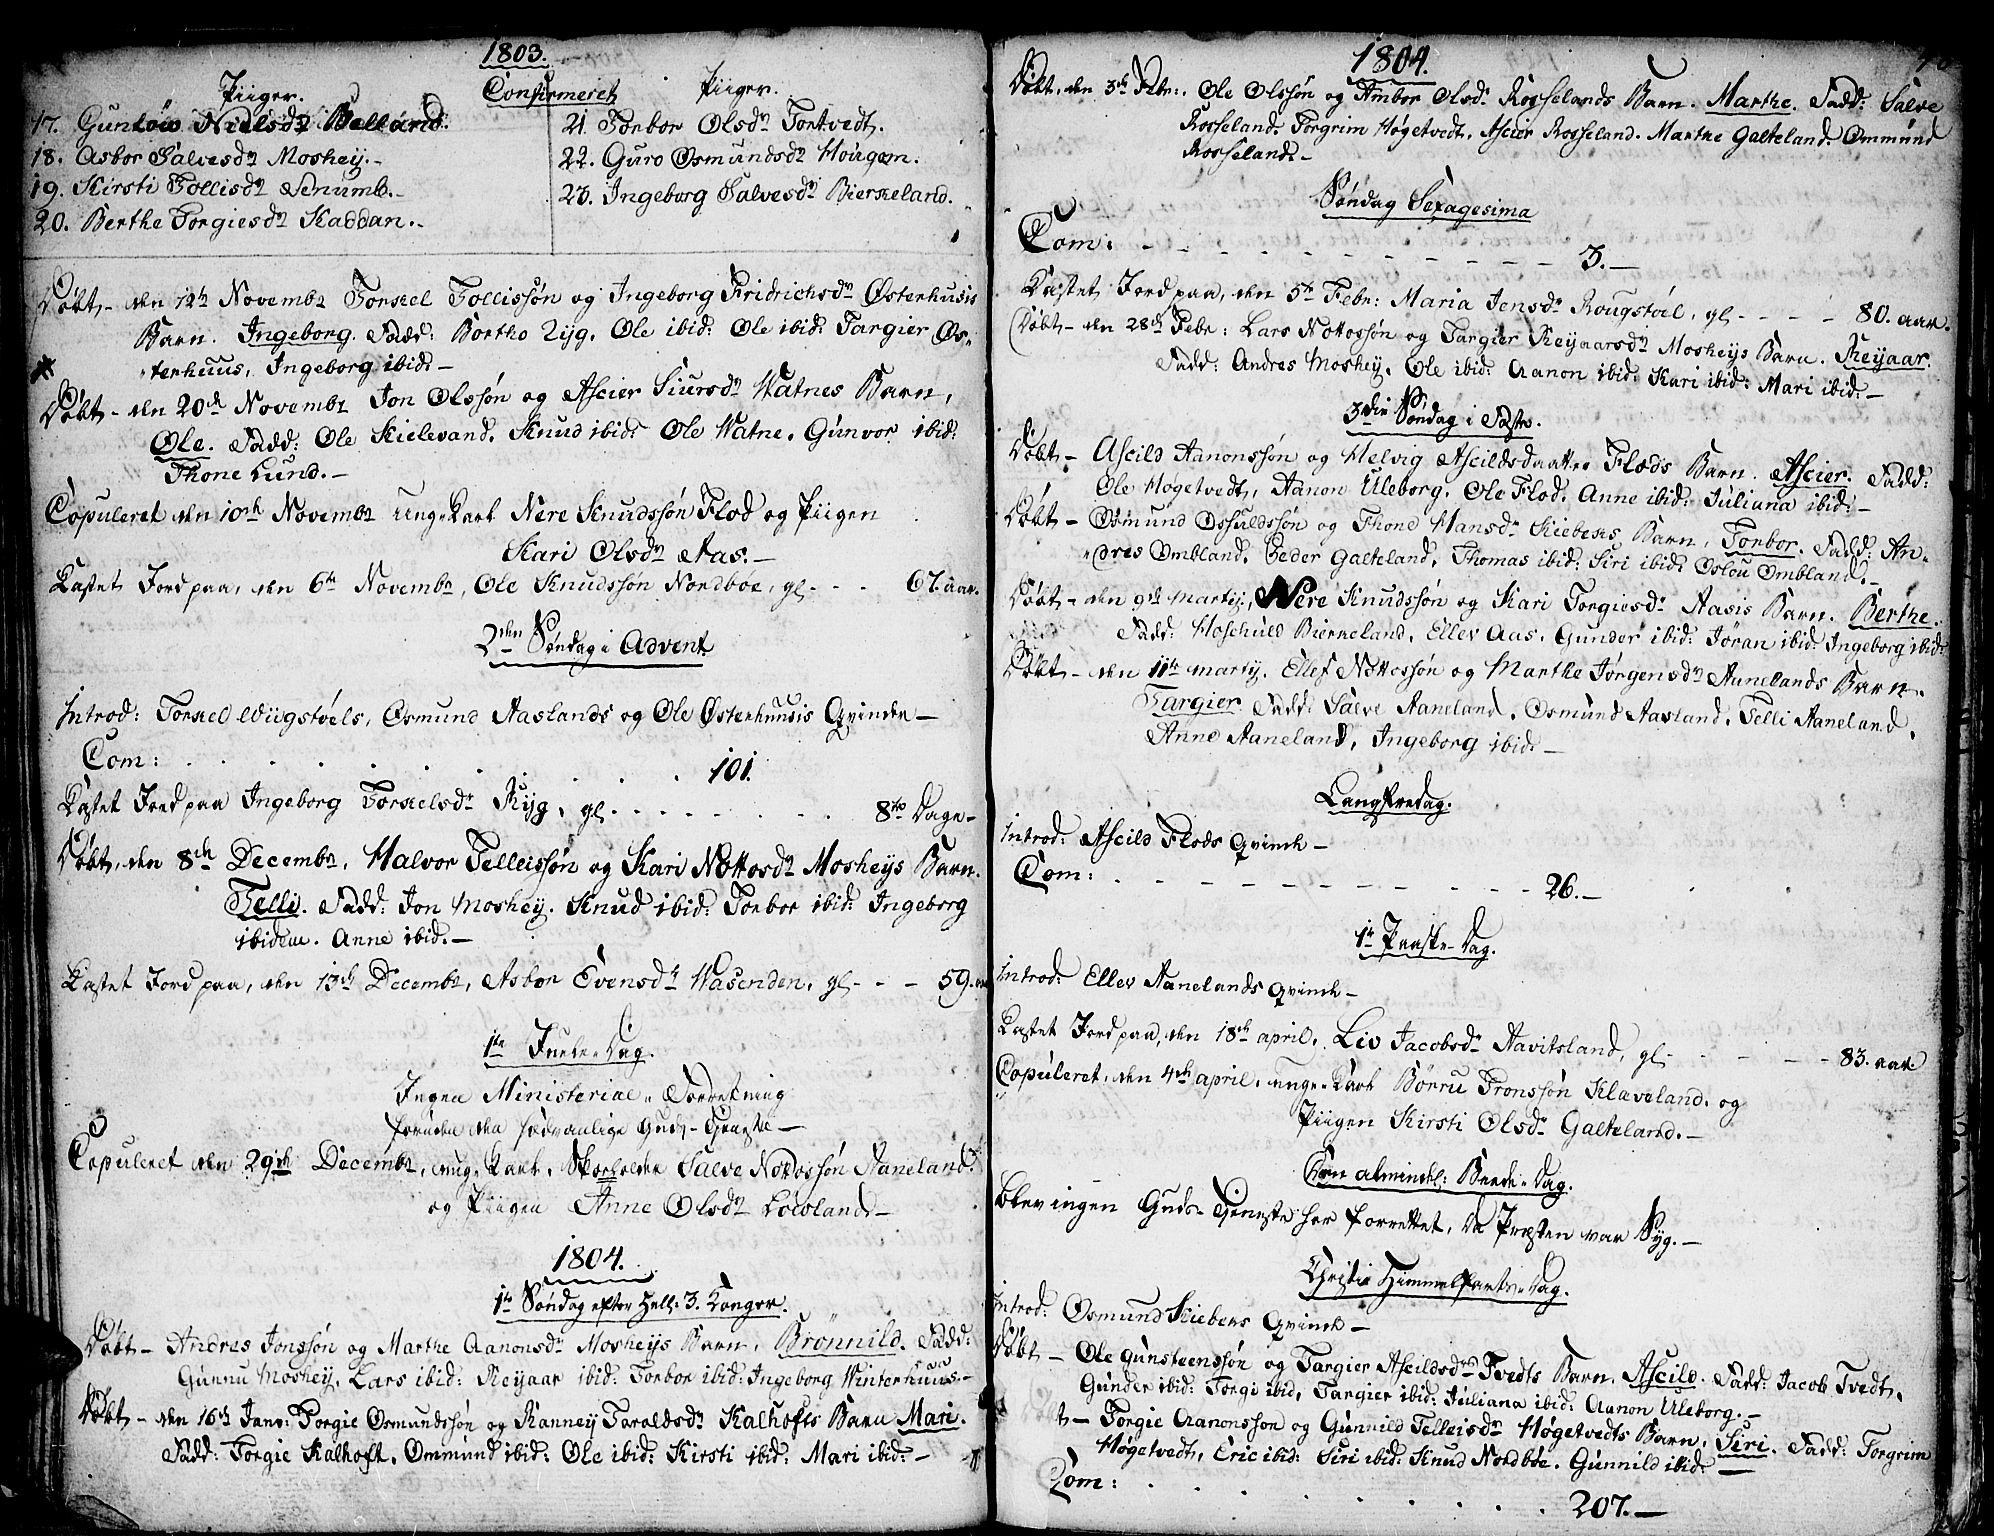 1803.
Piiger. Confirmeret Piiger.
17. Gunlöw Nielsdr Belland.
18. Asbor Salvesdr Moshey.-
19. Kirsti Tollisdr Senumb.-
20. Berthe Torgiesdr Kaddan.-
21. Torbor Olsdr Tortvedt.
22. Guro Osmundsdr Hougom.
23. Ingeborg Salvesdr Bierkeland.
Döbt - den 12te Novembr Torkel Tollissön og Ingeborg Fridrichsdr Østerhusis
Barn. Ingeborg. Fadd: Bertho Ryg. Ole ibid: Ole ibid: Targier Øs-
terhuus, Ingeborg ibid:-
Döbt - den 20de Novembr Jon Olssön og Ascier Siursdr Watnes Barn,
Ole. Fadd: Ole Kielevand. Knud ibid: Ole Watne. Gunvor ibid:
Thone Lund.-
Copuleret den 10de Novembr Unge Karl Nere Knudssön Flod og Piigen
Kari Olsdr Aas.-
Kastet Jord paa, den 6te Novembr, Ole Knudssön Nordboe, gl. - - 67. aar.
2den Söndag i Advent
Introd: Torkel Wiigstöels, Osmund Aaslands og Ole Østerhuusis Qvinder-
Com: . . . . . . 101.
Kastet Jord paa Ingeborg Torkelsdr Ryg, gl. - - - - 8te Dage-
Döbt, den 8de Decembr, Halvor Telleissön og Kari Nottosdr Mosheys Barn.
Telli. Fadd: Jon Moshey. Knud ibid: Torbor ibid: Ingeborg
ibidem. Anne ibid.-
Kastet Jord paa, den 13de Decembr, Asbor Evensdr Wasenden, gl. - - 59.
1te Juele-Dag.
Ingen Ministerial-Forretning
foruden den sædvanlige Guds-Tieneste-
Copuleret den 29de Decembr, unge Karl, Skoeholder Salve Nottossön Aaneland.
og Piigen Anne Olsdr Løoland.-
1804.
1te Söndag efter Hell: 3. Konger.
Döbt - Andres Jonssön og Marthe Aanonsdr Mosheys Barn, Brönnild. Fadd:
Gunnu Moshey, Lars ibid: Reyaar ibid: Torbor ibid: Ingeborg Winterhuus.-
Döbt - den 16de Janr: Torgie Osmundssön og Ranney Taraldsdr Kalhofts Barn Mari.
Fadd: Torgie Kalhoft. Ommund ibid: Ole ibid: Kirsti ibid: Mari ibid:-
1804.
Döbt, den 3de Febr:. Ole Olssön og Ambor Olsdr Rosselands Barn. Marthe. Fadd: Salve
Rosseland. Torgrim Høgetvedt. Ascier Rosseland. Marthe Galteland. Ommund
Rosseland.-
Söndag Sexagesima
Com: - - - - - - 3.-
Kastet Jord paa, den 5te Febr: Maria Jensdr Rougstöel, gl. - - - 80. aar.
Döbt - den 28de Febr: Lars Nottossön og Targier Reyaarsdr Mosheys Barn. Reyaar.
Fadd: Andres Moshey. Ole ibid: Aanon ibid: Kari ibid: Mari ibid:-
3die Söndag i Faste.
Döbt - Ascild Aanonssön og Helvig Ascildsdaatter Flods Barn. Ascier. Fadd:
Ole Høgetvedt, Aanon Uleborg. Ole Flod. Anne ibid: Juliana ibid:-
Döbt - Osmund Osuldssön og Thone Hansdr Kiebens Barn, Torbor. Fadd: An-
dres Ombland. Peder Galteland, Thomas ibid: Siri ibid: Oslou Ombland.-
Döbt - den 9de Martij, Nere Knudssön og Kari Torgiesdr Aasis Barn. Berthe.
Fadd: Hoschuld Bierkeland. Ellev Aas. Gunder ibid: Jöran ibid: Ingeborg ibid:
Döbt - den 11te Martij. Ellef Nottossön og Marthe Jörgensdr Aanelands Barn.
Targier. Fadd: Salve Aaneland. Osmund Aasland. Telli Aaneland.
Anne Aaneland, Ingeborg ibid:-
Langfredag.
Introd: Ascild Flods Qvinde-
Com: - - - - - - 26.-
1te Paaske-Dag.
Introd: Ellev Aanelands Qvinde-
Kastet Jord paa, den 18de April, Liv Jacobsdr Aavitsland, gl. - - - 83. aar
Copuleret, den 4de April, unge Karl Börru Tronssön Klaveland. og
Piigen Kirsti Olsdr Galteland.-
Den almindel: Beede-Dag.
Blev ingen Guds-Tieneste her forrettet, da Præsten var Syg.-
Christi Himmelfarts-Dag.
Introd: Osmund Kiebens Qvinde-
Döbt - Ole Gunsteenssön og Targier Ascildsdr Tvedts Barn. Ascild. Fadd: Jacob Tvedt.
Gunder ibid: Torgi ibid, Targier ibid: Juliana ibid: Aanon Uleborg.-
t - Torgie Aanonsson og Gunnild Telleisdr Høgetvedts Barn, Siri. Fadd: Torgrim
Høgetvedt, Eric ibid: Siri ibid: Knud Nordböe. Gunnild ibid:-
Com: . . . . . . 207.-